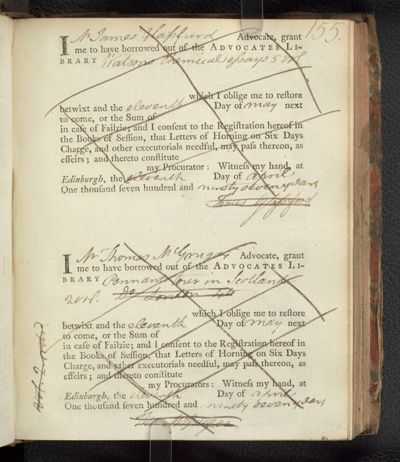 155.
I Mr James Advocate, grant
me to have borrowed out of the ADVOCATES LI-
BRARY Watsons Chemical essays 5 vol
which I oblige me to reſtore
betwixt and the eleventh Day of may next
to come, or the Sum of
in caſe of Failzie; and I conſent to the Regiſtration hereof in
the Books of Seſſion, that Letters of Horning on Six Days
Charge, and other executorials needful, may paſs thereon, as
effeirs; and thereto conſtitute
my Procurator: Witneſs my hand, at
Edinburgh, the eleventh Day of April
One thouſand ſeven hundred and ninety seven years
I Mr Thomas McGrugar Advocate, grant
me to have borrowed out of the ADVOCATES LI-
BRARY Pennants Tour in Scotland
2 vol. Do London 4to
which I oblige me to reſtore
betwixt and the eleventh Day of may next
to come, or the Sum of
in caſe of Failzie; and I conſent to the Regiſtration hereof in
the Books of Seſſion, that Letters of Horning on Six Days
Charge, and other executorials needful, may paſs thereon, as
effeirs; and thereto conſtitute
my Procurators: Witneſs my hand, at
Edinburgh, the eleventh Day of April
One thouſand ſeven hundred and ninety seven years